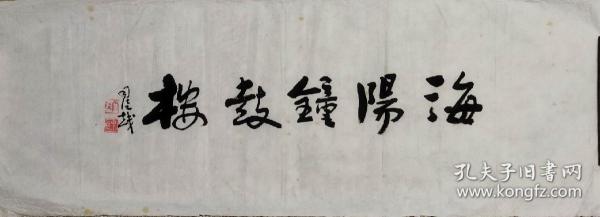 海陽鐘鼓楼
孔夫子旧书网
www.kongfz.com